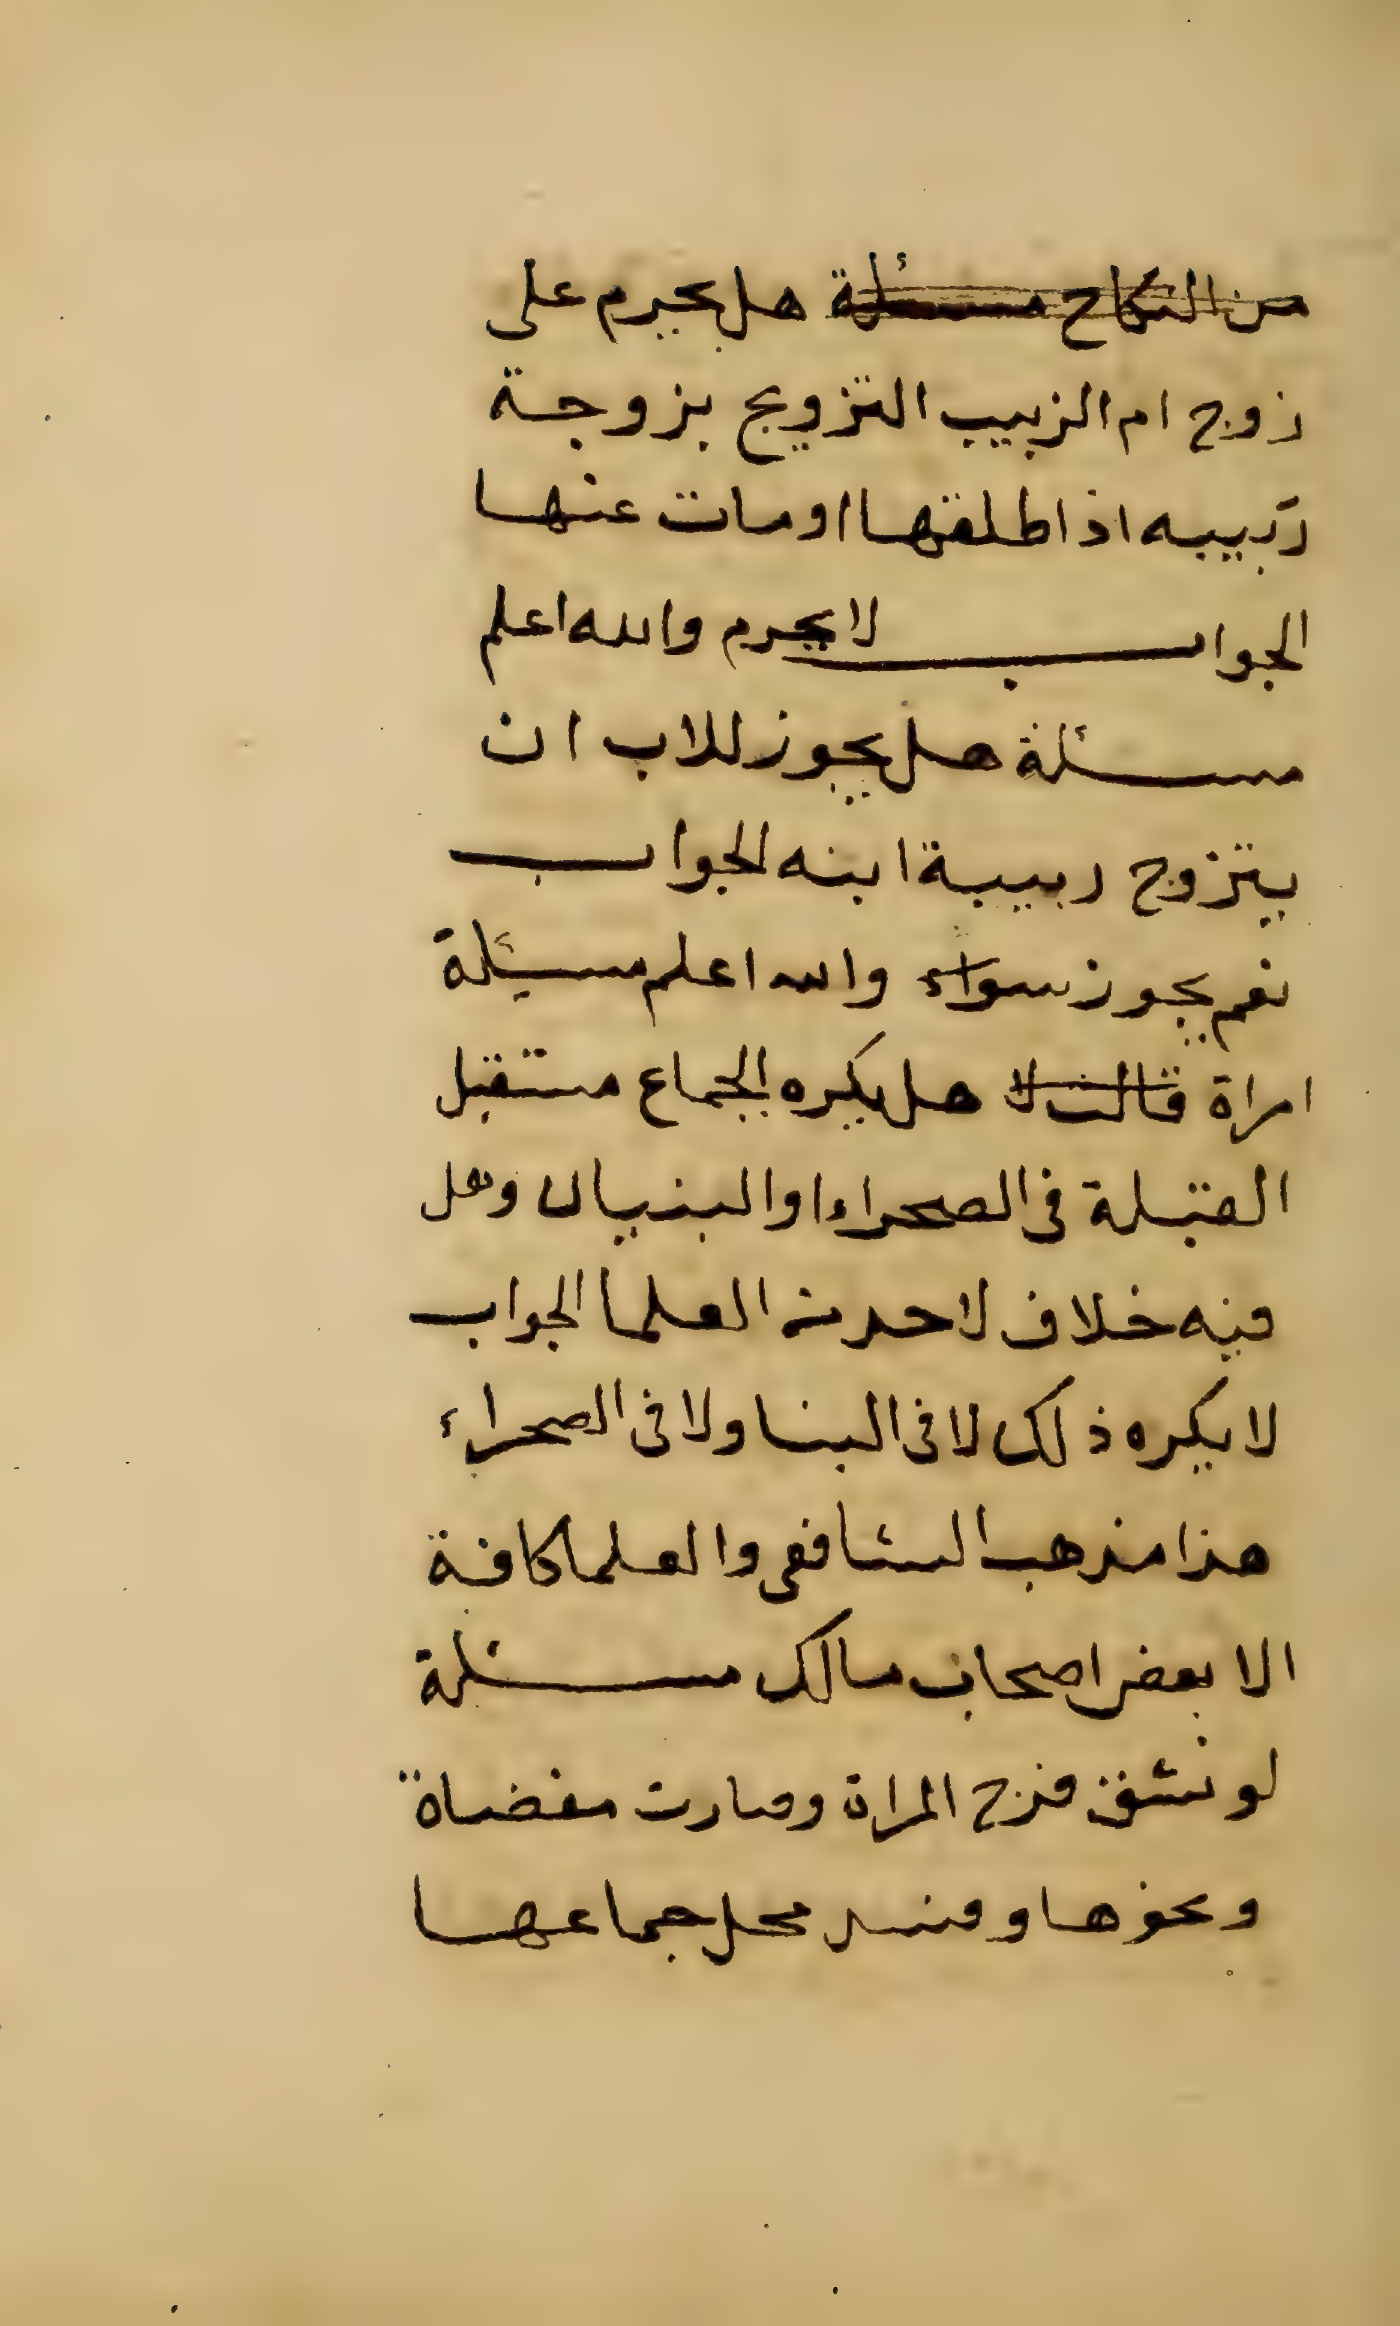 من النكاح مسئلة هل يحرم على
زوج ام الزبيب التزويج بزوجة
ربيبه اذا طلقها او مات عنها
الجواب لا يحرم والله اعلم
مسئلة هل يجوز للاب ان
يتزوج ربيبة ابنه الجواب
نعم يجوز سواء والله اعلم مسيئلة
امراة قالت لا هل يكره الجماع مستقبل
القبلة فى الصحراء او البنيان وهل
فيه خلاف لاحد من العلما الجواب
لا يكره ذلك لا فى البنا ولا فى الصحراء
هذا مذهب الشافعى والعلما كافة
الا بعض اصحاب مالك مسئلة
لو نشف فرج المراة وصارت مفضاة
ونحوها وفسد محل جماعها